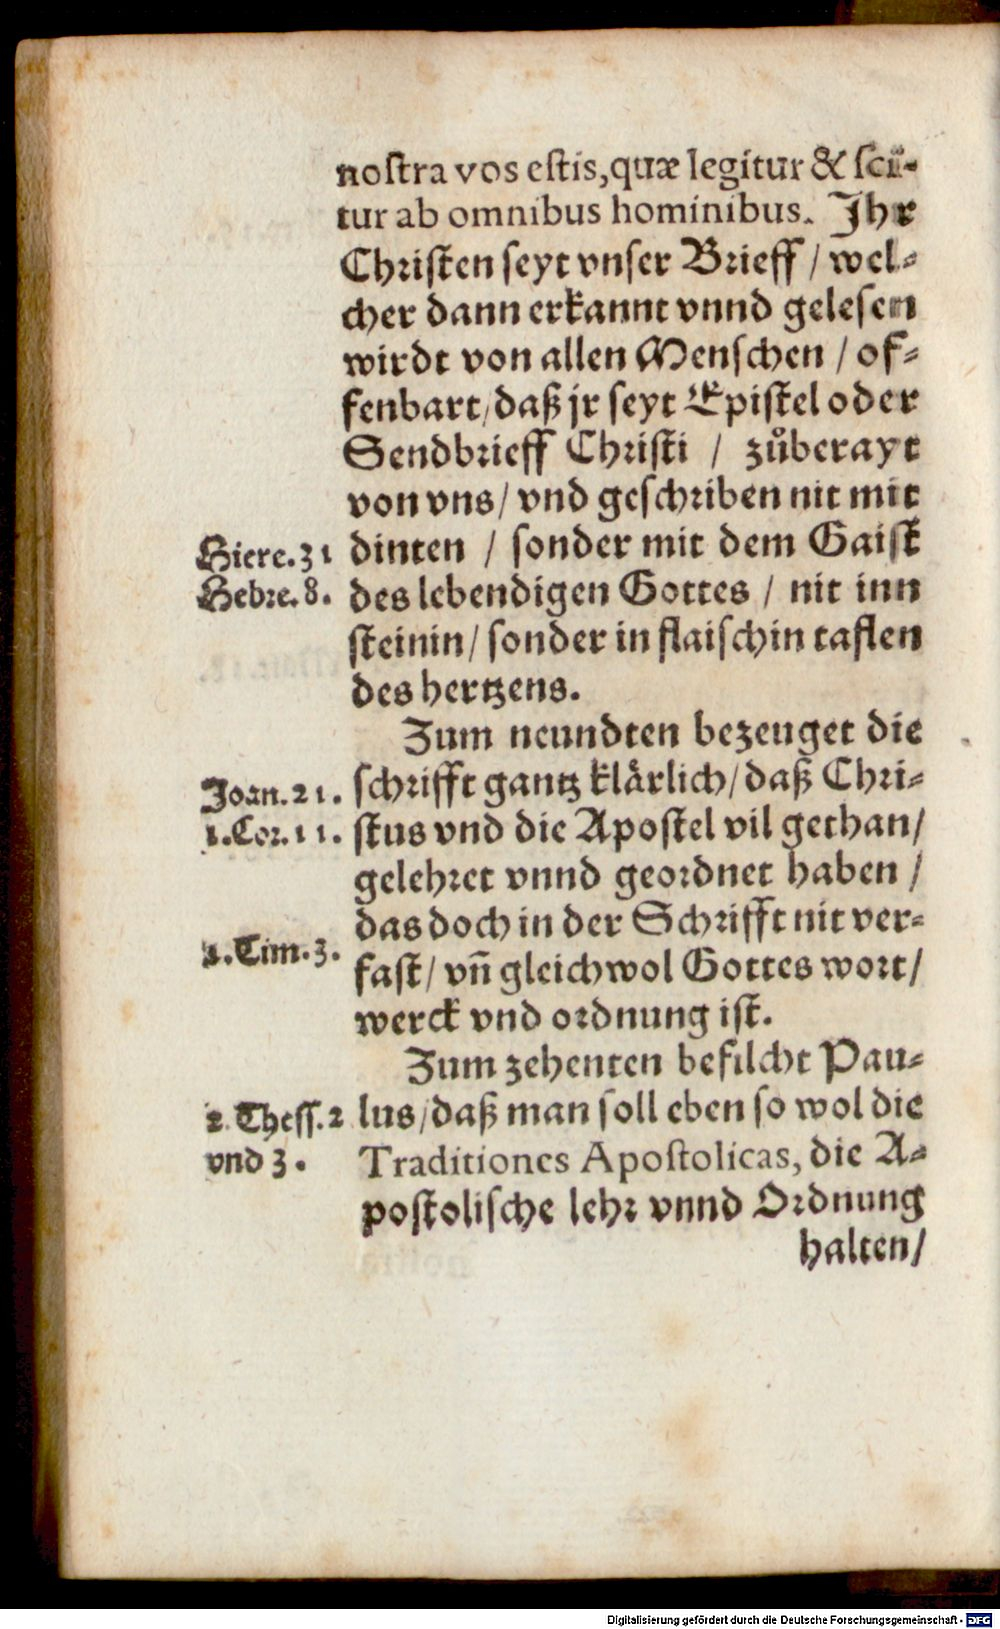 nostra vos estis, quæ legitur & scī-
tur ab omnibus hominibus. Ihr
Christen seyt vnser Brieff / wel-
cher dann erkannt vnnd gelesen
wirdt von allen Menschen / of-
fenbart, daß jr seyt Epistel oder
Sendbrieff Christi / zůberayt
von vns / vnd geschriben nit mit
Hiere. 31
dinten / sonder mit dem Gaist
Hebre. 8.
des lebendigen Gottes / nit inn
steinin / sonder in flaischin taflen
des hertzens.
Zum neundten bezeuget die
Joan. 21.
schrifft gantz klärlich / daß Chri-
1. Cor. 11.
stus vnd die Apostel vil gethan /
gelehret vnnd geordnet haben /
das doch in der Schrifft nit ver-
1. Tim. 3.
fast / vñ gleichwol Gottes wort /
werck vnd ordnung ist.
Zum zehenten befilcht Pau-
2. Thess. 2
lus / daß man soll eben so wol die
vnd 3.
Traditiones Apostolicas, die A-
postolische lehr vnnd Ordnung
halten /
Digitalisierung gefördert durch die Deutsche Forschungsgemeinschaft - DFG